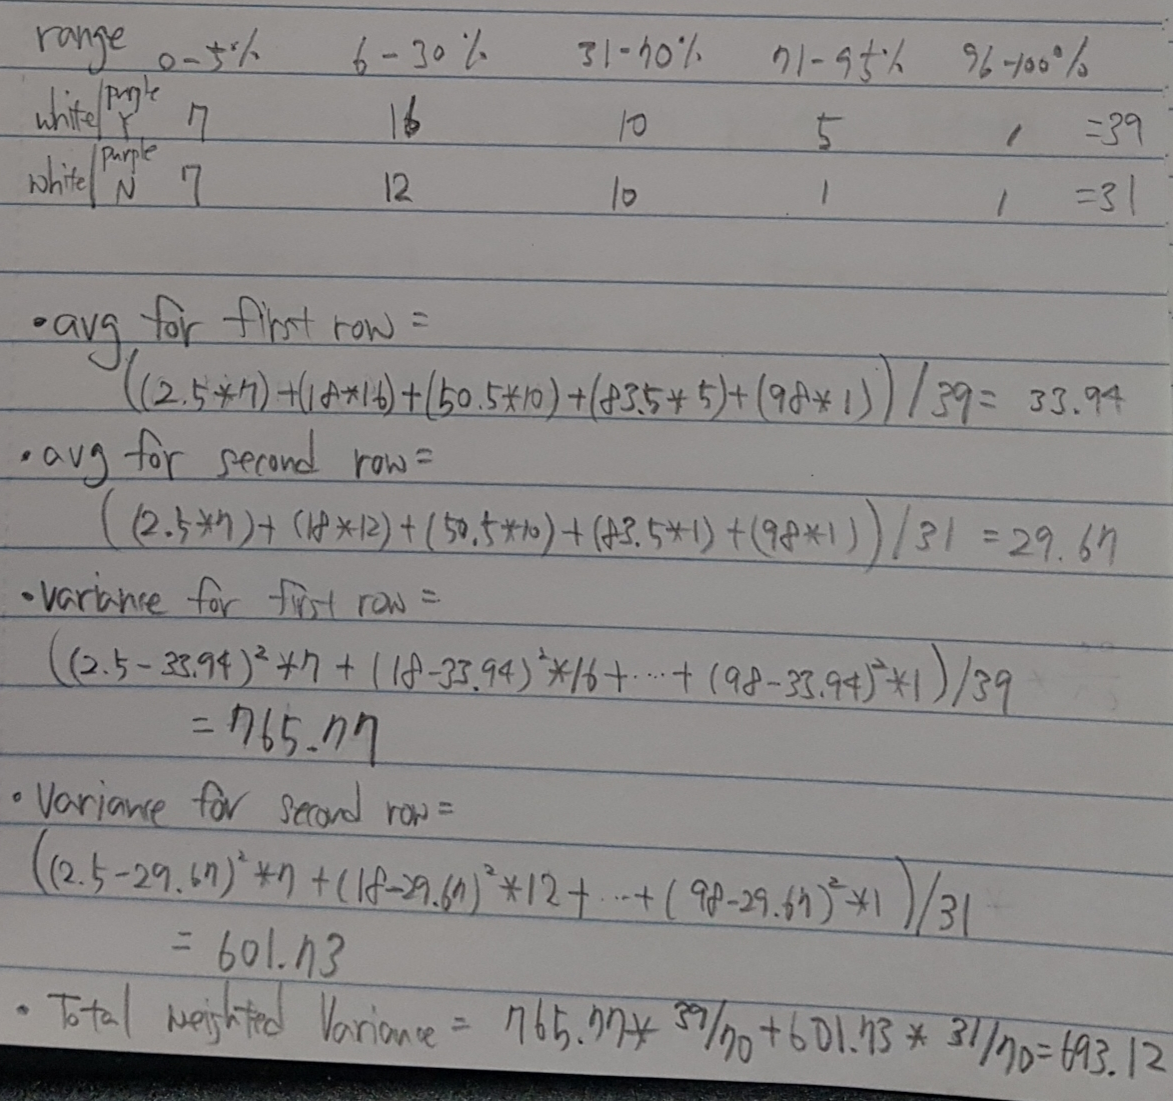 range 0-5% 6-30% 31-70% 71-95% 96-100%
white/purple Y 7 16 10 5 1 =39
white/purple N 7 12 10 1 1 =31
•avg for first row =
((2.5*7)+(18*16)+(50.5*10)+(83.5*5)+(98*1))/39= 33.94
•avg for second row=
((2.5*7)+(18*12)+(50.5*10)+(83.5*1)+(98*1))/31=29.67
•variance for first row =
((2.5-33.94)²*7+(18-33.94)²*16+...+(98-33.94)²*1)/39
=765.77
•Variance for second row=
((2.5-29.67)²*7+(18-29.67)²*12+...+(98-29.67)²*1)/31
= 601.73
•Total weighted Variance = 765.77*39/70+601.73*31/70=693.12